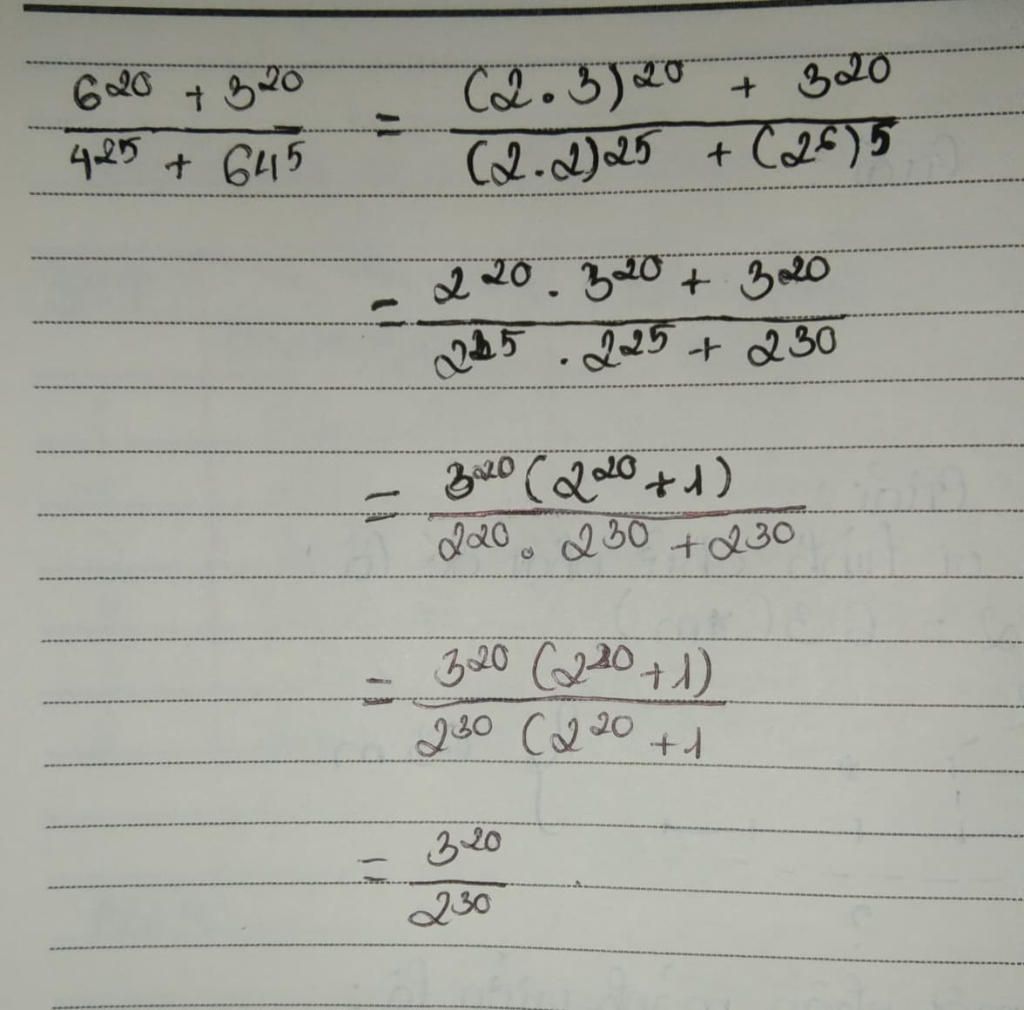 6²⁰ + 3²⁰ / 4²⁵ + 64⁵ = (2.3)²⁰ + 3²⁰ / (2.2)²⁵ + (2⁶)⁵
= 2²⁰ . 3²⁰ + 3²⁰ / 2²⁵ . 2²⁵ + 2³⁰
= 3²⁰ (2²⁰ + 1) / 2²⁰ . 2³⁰ + 2³⁰
= 3²⁰ (2²⁰ + 1) / 2³⁰ (2²⁰ + 1
= 3²⁰ / 2³⁰